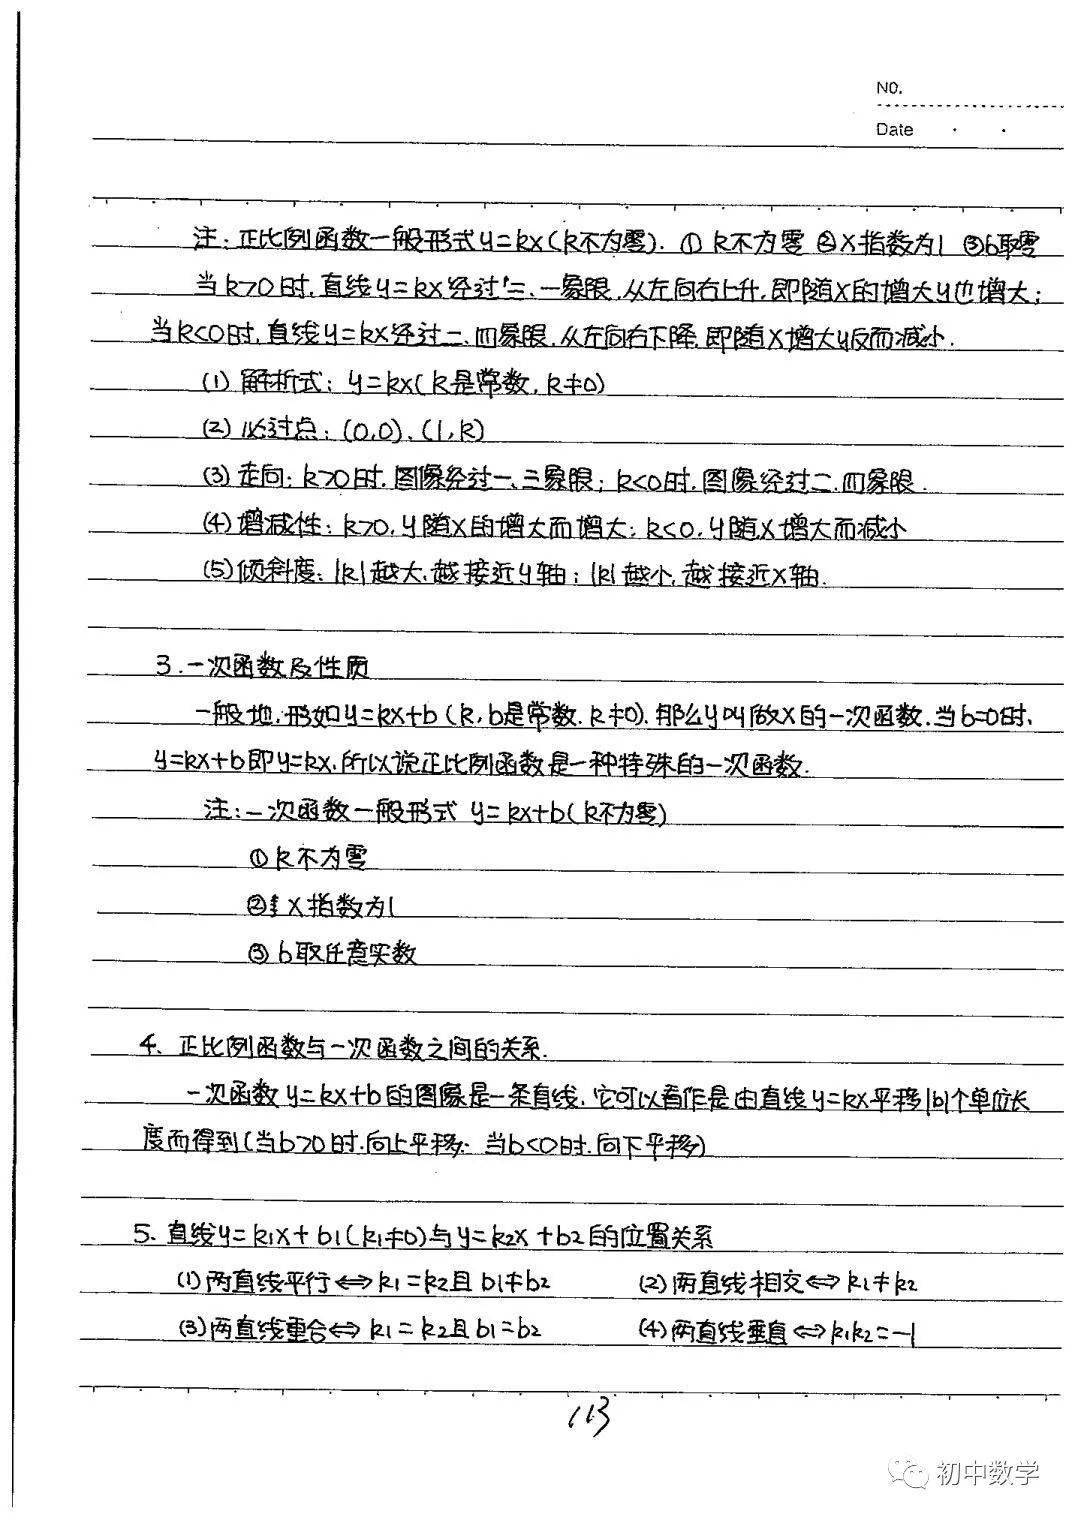 NO.
Date
注：正比例函数一般形式y=kx(k不为零). ① k不为零 ②x指数为1 ③b取零
当k>0时,直线y=kx经过三、一象限,从左向右上升,即随x的增大y也增大;
当k<0时,直线y=kx经过二、四象限,从左向右下降,即随x增大y反而减小.
(1) 解析式：y=kx(k是常数, k≠0)
(2) 必过点：(0,0)、(1,k)
(3) 走向：k>0时,图像经过一、三象限; k<0时,图象经过二、四象限.
(4) 增减性：k>0,y随x的增大而增大; k<0,y随x增大而减小
(5) 倾斜度：|k|越大,越接近y轴; |k|越小,越接近x轴.
3.一次函数及性质
一般地,形如y=kx+b (k,b是常数,k≠0),那么y叫做x的一次函数.当b=0时,
y=kx+b即y=kx,所以说正比例函数是一种特殊的一次函数.
注：一次函数一般形式 y=kx+b(k不为零)
① k不为零
② x指数为1
③ b取任意实数
4、正比例函数与一次函数之间的关系.
一次函数y=kx+b的图象是一条直线,它可以看作是由直线y=kx平移|b|个单位长
度而得到(当b>0时,向上平移; 当b<0时,向下平移)
5、直线y=k1x+b1(k1≠0)与y=k2x+b2的位置关系
(1)两直线平行⇔k1=k2且b1≠b2 (2)两直线相交⇔k1≠k2
(3)两直线重合⇔k1=k2且b1=b2 (4)两直线垂直⇔k1k2=-1
113
初中数学